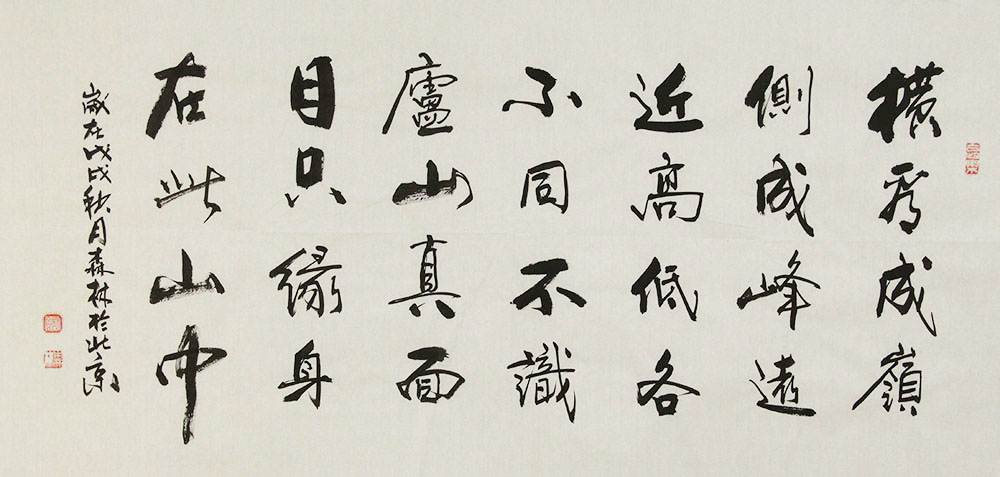 橫看成嶺
側成峰遠
近高低各
不同不識
廬山真面
目只緣身
在此山中
歲在戊戌秋月森林於北京